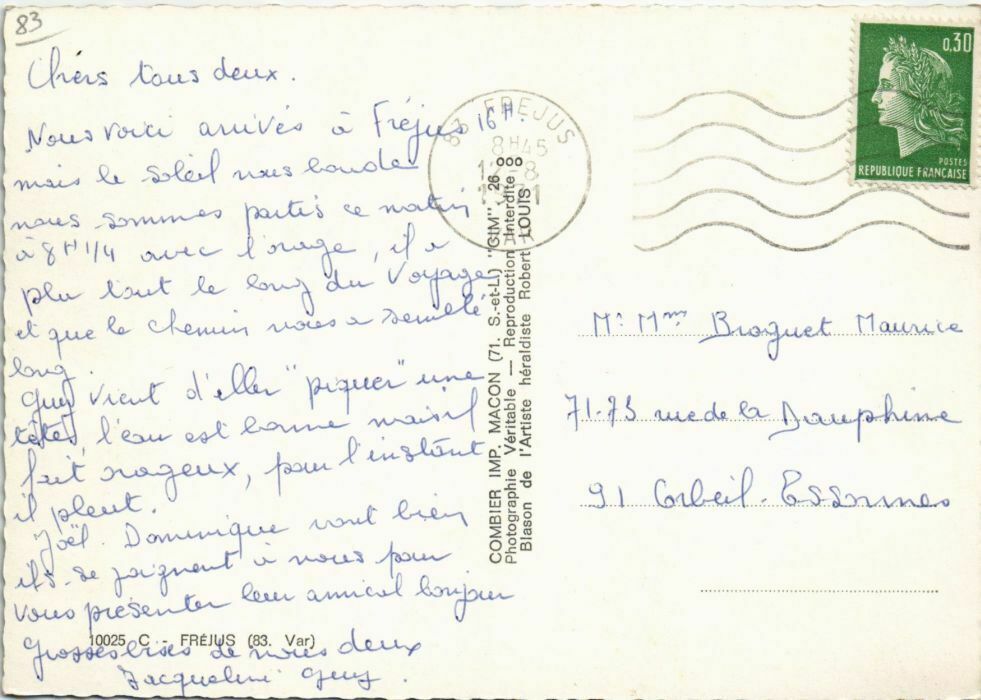 83
Chers tous deux.
Nous voici arrivés à Fréjus 16H.
mais le soleil nous boude
nous sommes partis ce matin
à 8H1/4 avec l'orage, il a
plu tout le long du Voyage
et que le chemin nous a semblé
long.
Guy vient d'aller "piquer" une
tête, l'eau est bonne mais il
fait orageux, pour l'instant
il pleut.
Joël. Dominique vont bien
ils se joignent à nous pour
vous présenter leur amical bonjour
Grosses bises de nous deux
Jacqueline Guy.
10025 C - FRÉJUS (83. Var)
COMBIER IMP. MACON (71. S.-et-L.) "CIM"
Photographie Véritable — Reproduction Interdite
Blason de l'Artiste héraldiste Robert LOUIS
26 000
83 FREJUS
8H45
0,30
POSTES
REPUBLIQUE FRANÇAISE
Mr Mme Broguet Maurice
71-73 rue de la Dauphine
91 Corbeil-Essonnes